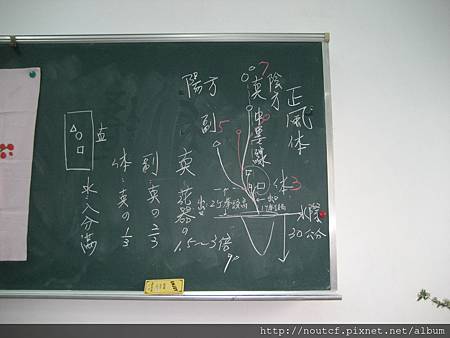 正風体
陰方
真
7
中墨線
陽方
副
5
体3
水際
30公分
真 花器の
1.5~3倍
副:真の2/3
体:真の1/3
直
水:八分満
http://noutcf.pixnet.net/album